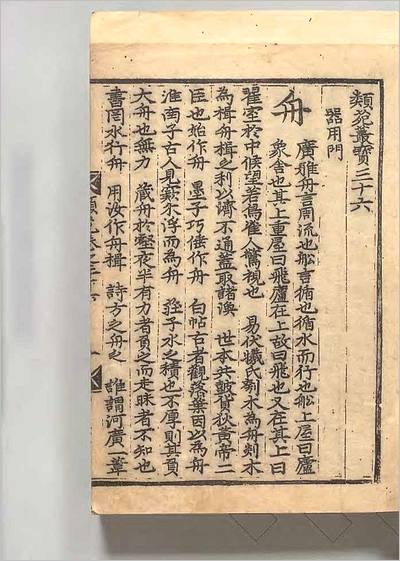 類苑叢寶三十六
器用門
舟
廣雅舟言周流也船言循也循水而行也船上屋曰廬
象舍也其上重屋曰飛廬在上故曰飛也又在其上曰
雀室於中候望若鳥雀人驚視也 易伏犧氏刳木為舟剡木
為楫舟楫之利以濟不通蓋取諸渙 世本共鼓貨狄黃帝二
臣也始作舟 墨子巧倕作舟 白帖古者觀落葉因以為舟
淮南子古人見窾木浮而為舟 莊子水之積也不厚則其負
大舟也無力 藏舟於壑夜半有力者負之而走昧者不知也
書罔水行舟 用汝作舟楫 詩方之舟之 誰謂河廣一葦